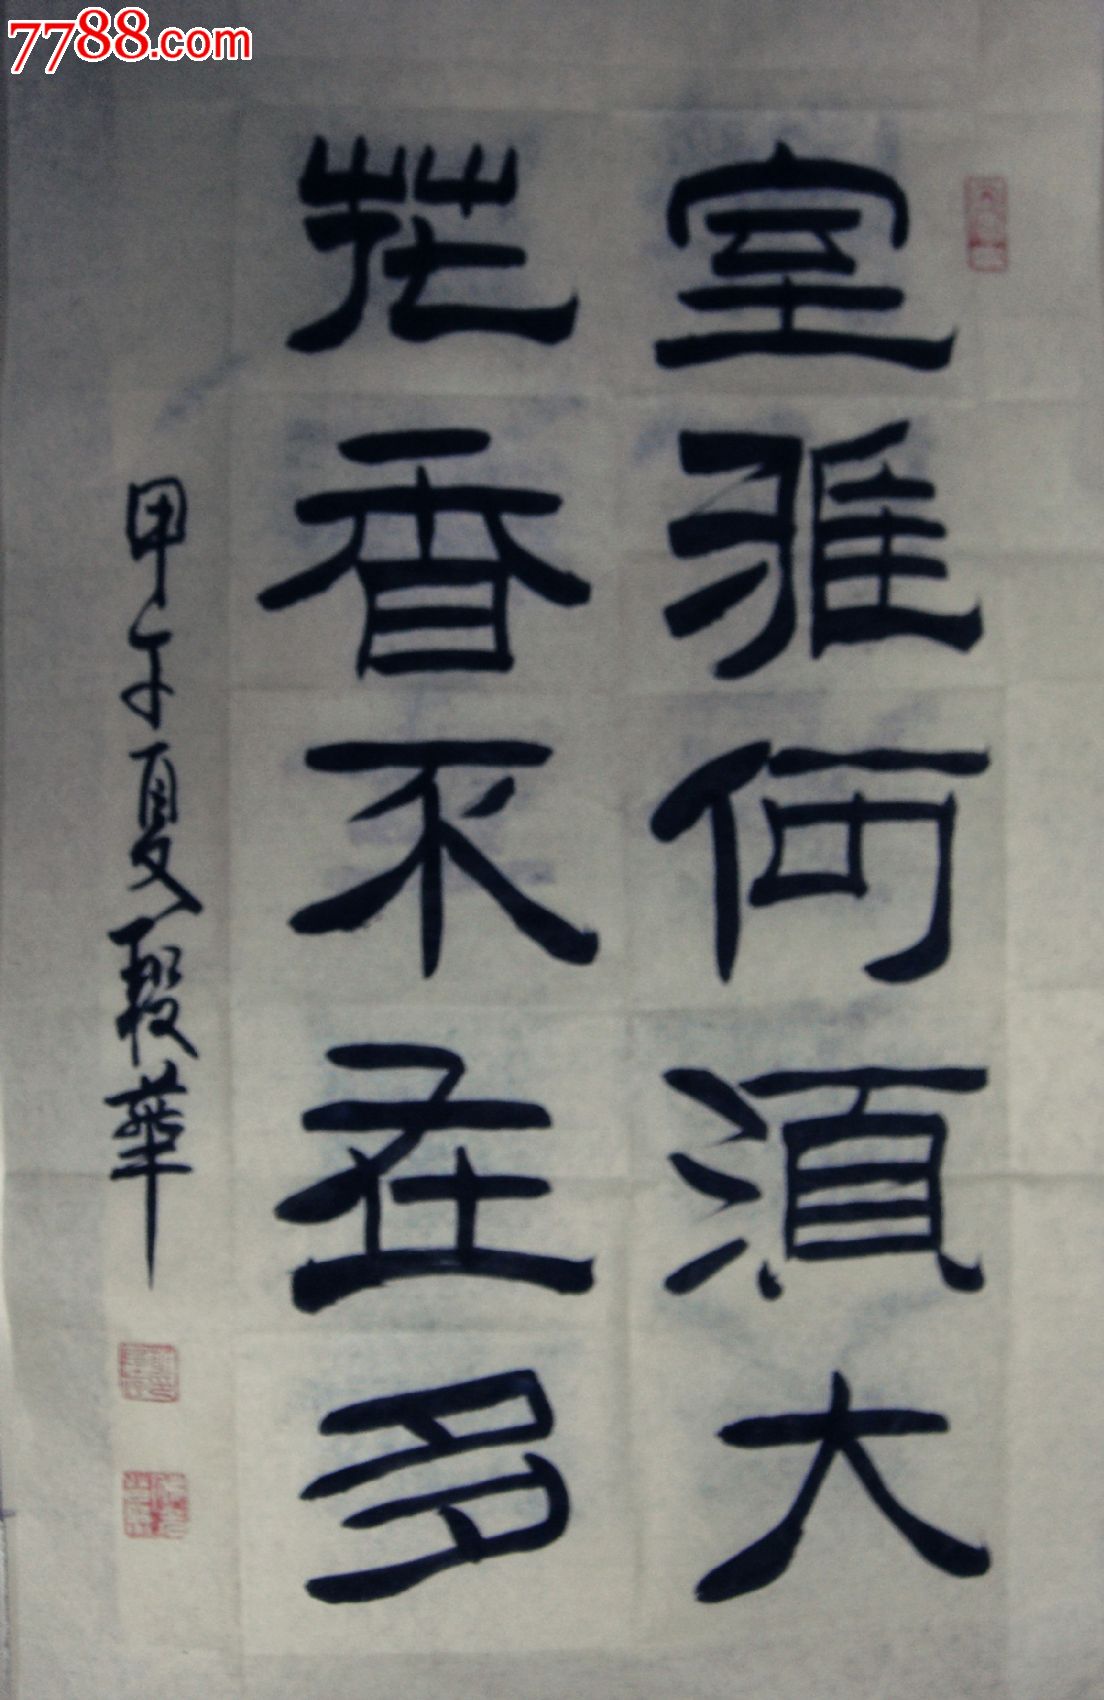 7788.com
室雅何須大
花香不在多
甲午夏殿華